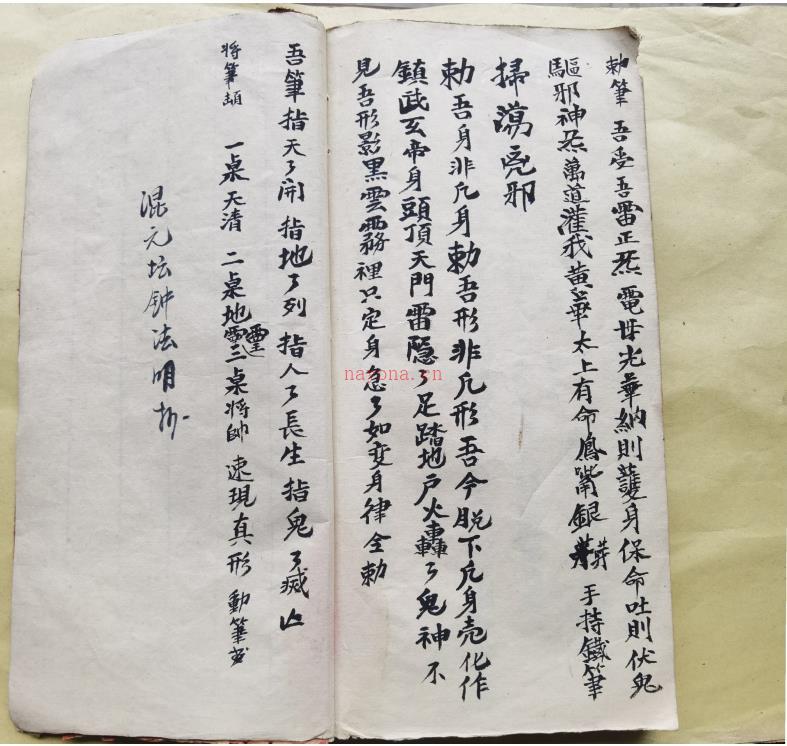 勅筆 吾受吾雷正炁 電母光華納則護身保命吐則伏鬼
驅邪神炁萬道灌我黄華太上有命鳳嘴銀 手持鐵筆
掃蕩妖邪
勅吾身非凡身勅吾形非凡形吾今脱下凡身壳化作
鎮武玄帝身頭頂天門雷隱々足踏地户火轟々鬼神不
見吾形影黑雲霧裡只定身急々如变身律令勅
吾筆指天々開 指地々列 指人々長生 指鬼々滅亡
将筆頓 一桌天清 二桌地靈三桌将帥 速現真形 動筆書
混元坛钟法明抄
nayona.cn